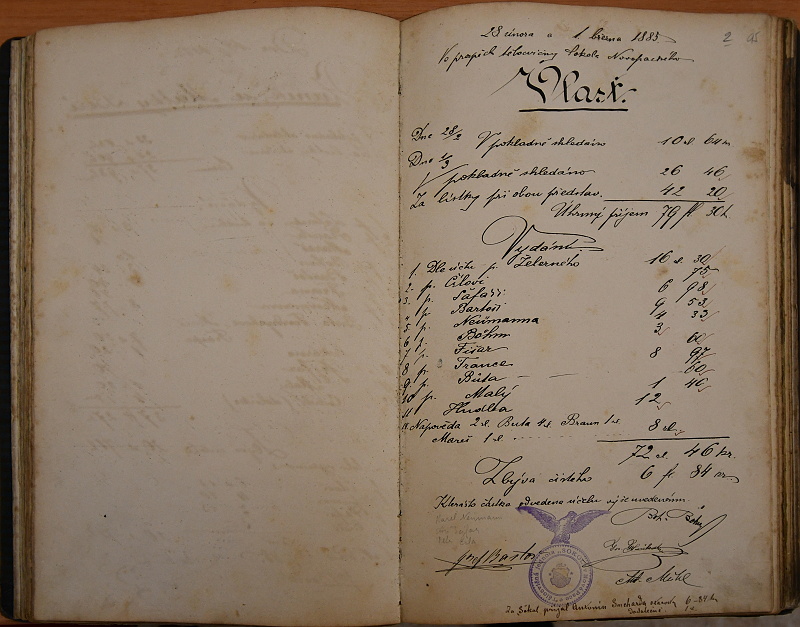 28 února a 1. března 1885
2
Ve prospěch tělocvičny Sokola Novopackého
Vlasť.
Dne 28/2 V pokladně shledáno 10 zl. 64 kr
Dne 1/3
V pokladně shledáno 26 46
Za lístky při obou představ. 42 20
Úhrnný příjem 79 zl 30 k.
Vydání:
1. Dle účtu p. Železného 16 zl. 30
2. p. Cílovi 75
3. p. Šafaři 6 98
4 p. Bartoši 9 53
5 p. Neümanna 4 33
6 p. Böhm 3
7 p. Fišar 60
8 p. France 8 97
9 p. Buta 60
10 p. Malý 1 46
11 Hudba 12
Napověda 2 zl. Buta 4 zl. Braun 1 zl.
Mareš 1 zl. 8 zl.
72 zl. 46 kr.
Zbývá čistého 6 zl 84 kr.
Kterážto částka odvedena účelu výše uvedenému.
Karel Neumann
Josef Bartoš
SOKOL
Za Sokol přijal Antonín 6-84 k